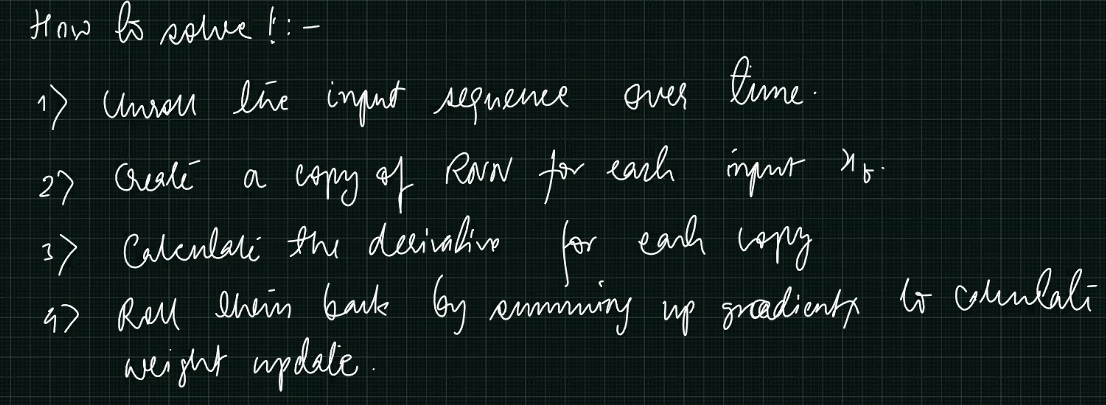 How to solve !:-
1) Unroll the input sequence over time.
2) Create a copy of RNN for each input xₜ.
3) Calculate the derivative for each copy
4) Roll them back by summing up gradients to calculate
weight update.